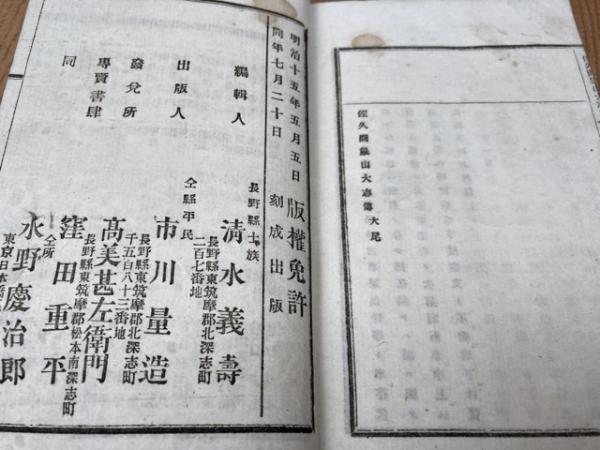 佐久間象山大志傳大尾
明治十五年五月五日版權免許
同年七月二十日刻成出版
長野縣士族
編輯人
清水義壽
長野縣東筑摩郡北深志町
二百七番地
仝縣平民
出版人
市川量造
長野縣東筑摩郡北深志町
千五百八十三番地
發兌所
高美甚左衛門
長野縣東筑摩郡松本南深志町
專賣書肆
窪田重平
仝所
同
水野慶治郎
東京日本橋